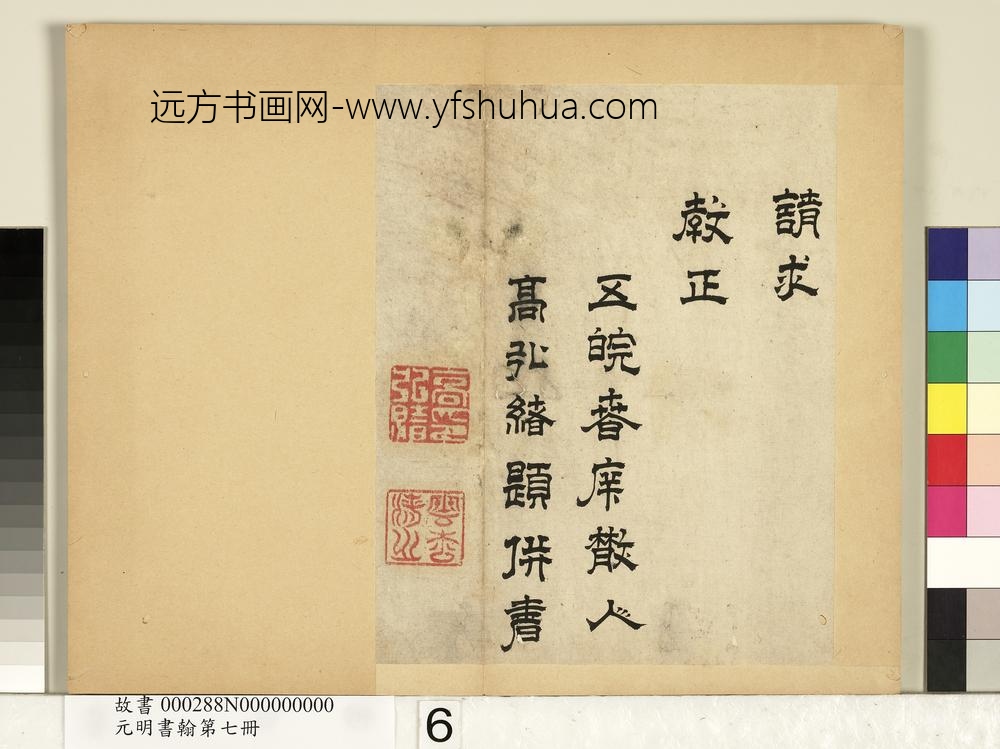 远方书画网-www.yfshuhua.com
請求
教正
五皖春庠散人
高弘緒題併書
故書 000288N000000000
元明書翰第七冊
6